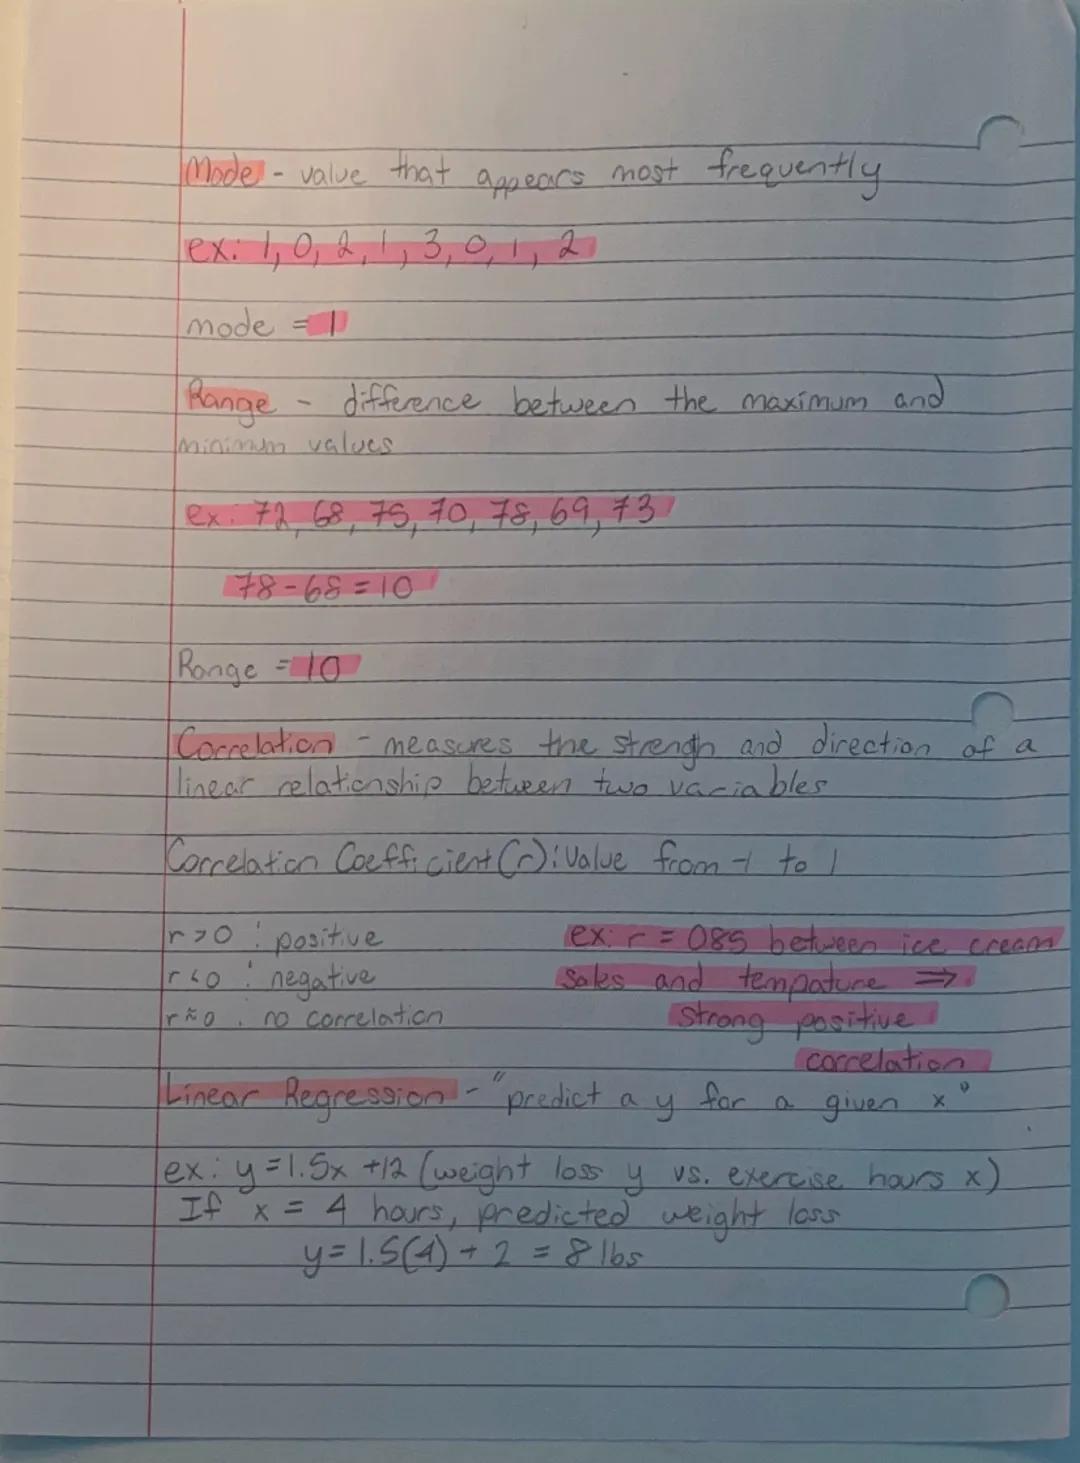 Mode - value that appears most frequently
ex: 1, 0, 2, 1, 3, 0, 1, 2
mode = 1
Range - difference between the maximum and
minimum values
ex: 72, 68, 75, 70, 78, 69, 73
78 - 68 = 10
Range = 10
Correlation - measures the strengh and direction of a
linear relationship between two variables
Correlation Coefficient (r): Value from -1 to 1
r > 0 : positive
r < 0 : negative
r ≈ 0 . no correlation
ex: r = 085 between ice cream
sales and tempature ⇒
strong positive
correlation
Linear Regression - "predict a y for a given x"
ex: y = 1.5x + 12 (weight loss y vs. exercise hours x)
If x = 4 hours, predicted weight loss
y = 1.5(4) + 2 = 8 lbs